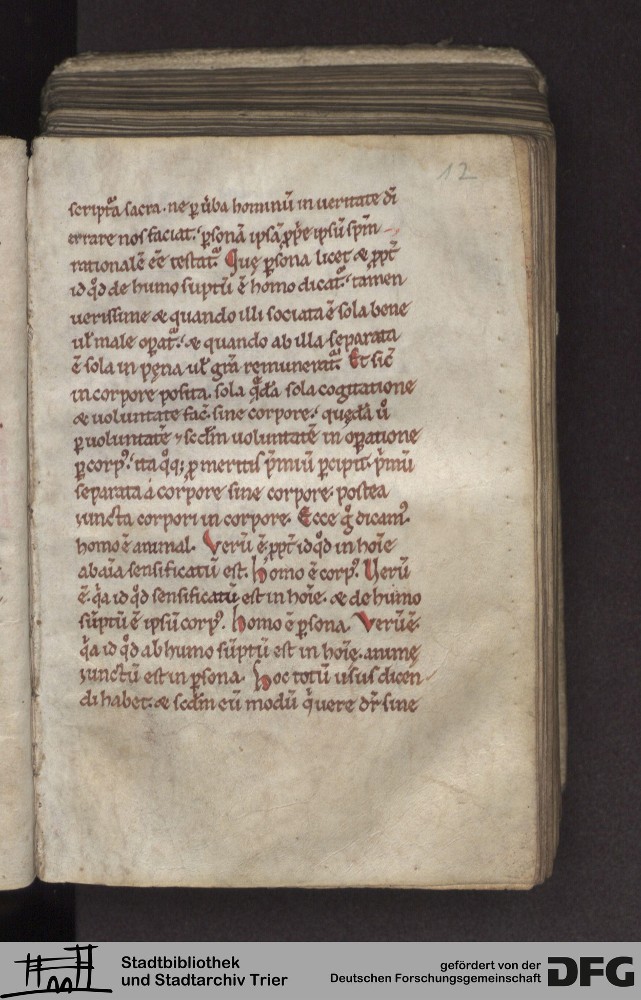 12
script̃a sacra. ne ꝑ ũba hominũ in veritate dĩ
errare nos faciat. ꝑsonã ipsã ꝓp̃e ipsũ sp̃m
rationalẽ eẽ testat᷑. Quę ꝑsona licet & ꝓpt̃
id qͦd de humo suptũ ẽ homo dicat᷑. tamen
uerissime & quando illi sociata ẽ sola bene
ul̃ male oꝑat᷑. & quando ab illa separata
ẽ sola in pęna ul̃ gr̃a remunerat᷑. Et sic̃
in corpore posita. sola qᷓdã sola cogitatione
& uoluntate fac̃ sine corpore. quędã ů
ꝑ uoluntatẽ ⁊ scd̃m uoluntatẽ in oꝑatione
ꝑ corpꝰ. ita qͦq; ꝓ meritis p̃miũ ꝑcipit. p̃miũ
separata á corpore sine corpore. postea
iuncta corpori in corpore. Ecce gͦ dicamꝰ.
homo ẽ animal. Verũ ẽ. ꝓpt̃ id qͦd in hoĩe
ab aĩa sensificatũ est. Homo ẽ corpꝰ. Verũ
ẽ. qᷓa id qͦd sensificatũ est in hoĩe. & de humo
sũptũ ẽ ipsũ corpꝰ. Homo ẽ ꝑsona. Verũ ẽ.
qᷓa id qͦd ab humo sũptũ est in hoĩe. animę
iunctũ est in ꝑsona. Hoc totũ usus dicen-
di habet. & scd̃m eũ modũ qͥuere dr̃ sine
Stadtbibliothek
und Stadtarchiv Trier
gefördert von der
Deutschen Forschungsgemeinschaft
DFG